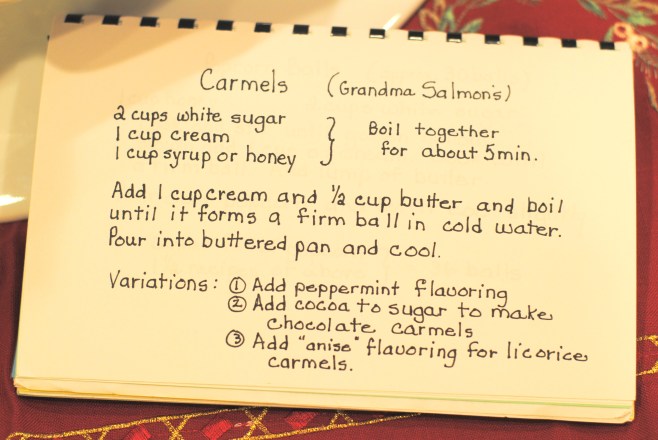 Carmels (Grandma Salmon's)
2 cups white sugar
1 cup cream
1 cup syrup or honey
} Boil together
for about 5min.
Add 1 cup cream and ½ cup butter and boil
until it forms a firm ball in cold water.
Pour into buttered pan and cool.
Variations: ① Add peppermint flavoring
② Add cocoa to sugar to make
chocolate carmels
③ Add "anise" flavoring for licorice
carmels.